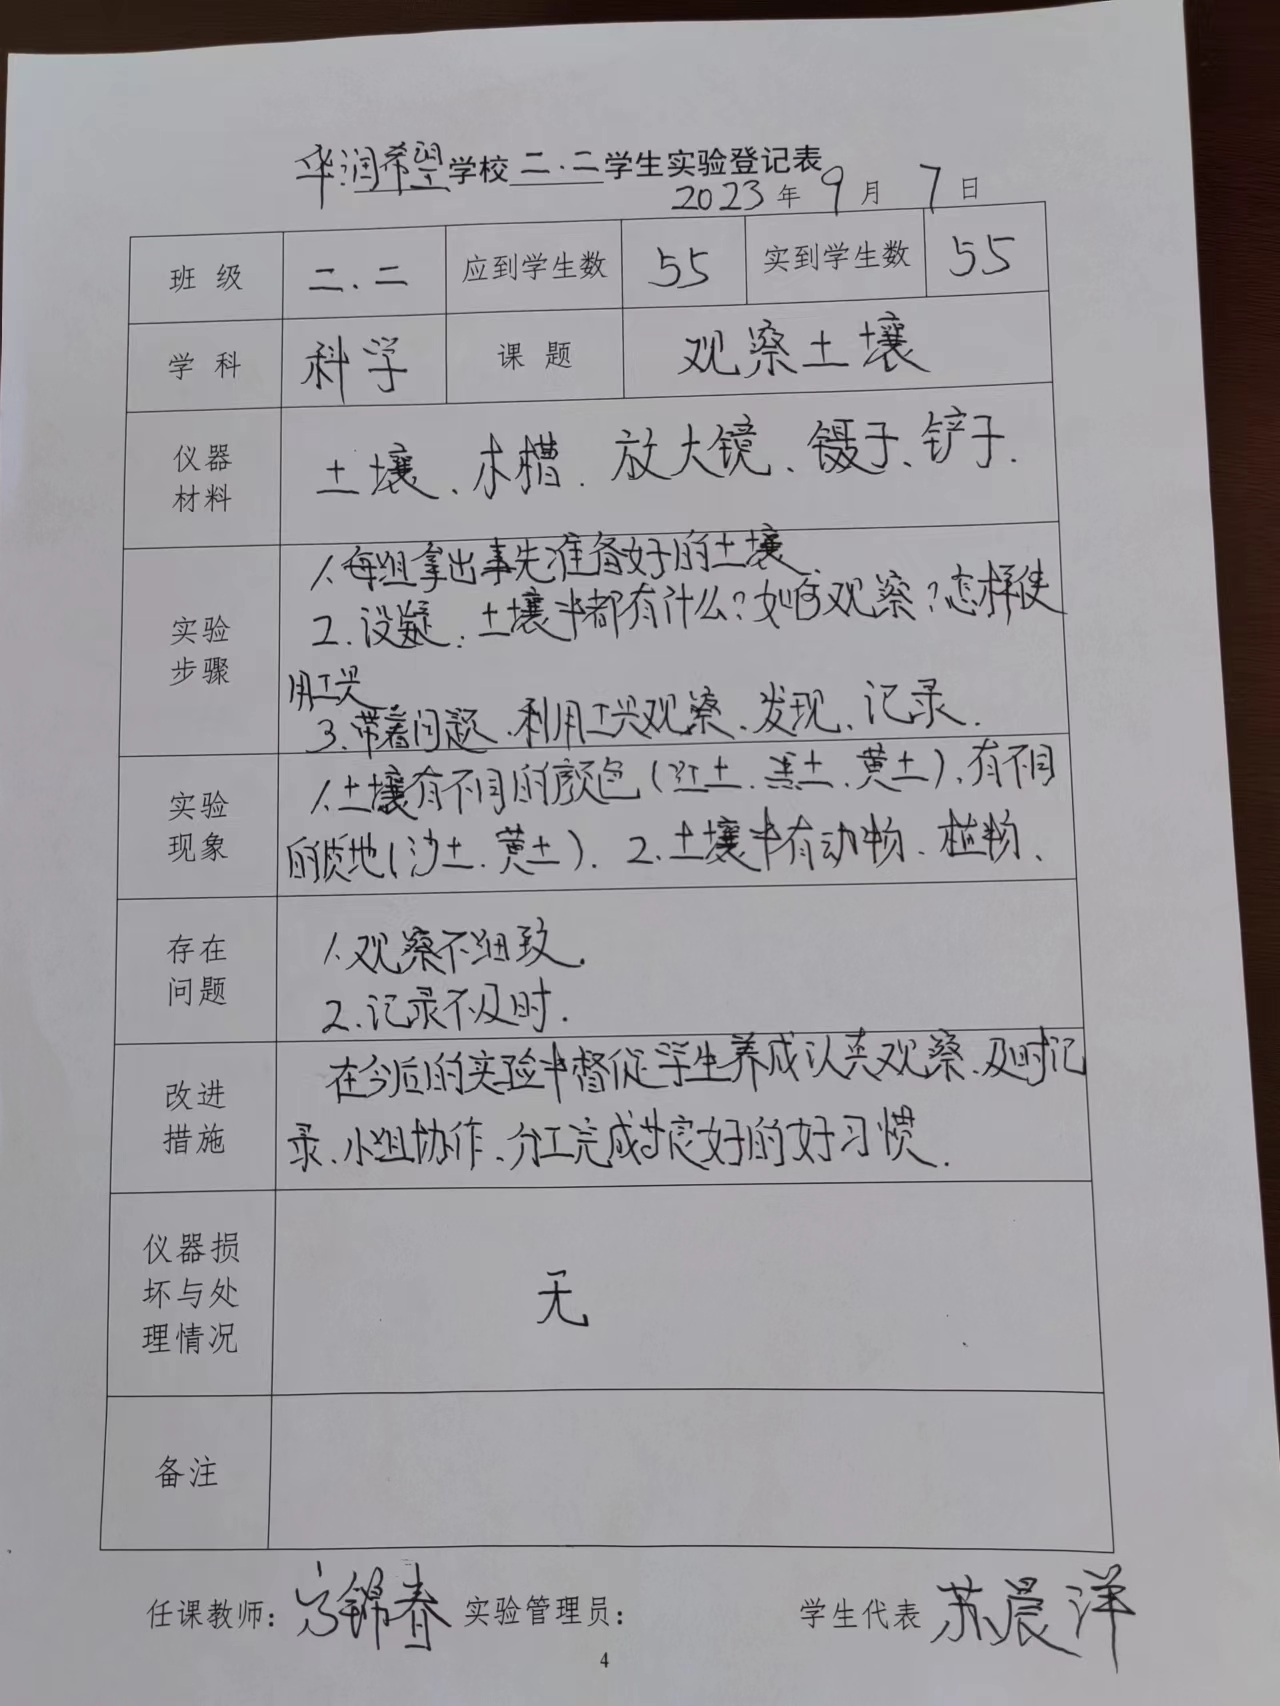 华润希望学校二.二学生实验登记表
2023年9月7日
班级 二.二 应到学生数 55 实到学生数 55
学科 科学 课题 观察土壤
仪器材料 土壤、木槽.放大镜、镊子、铲子.
实验步骤 1.每组拿出事先准备好的土壤
2.设疑:土壤中都有什么?如何观察?怎样使
用工具
3.带着问题、利用工具观察、发现、记录.
实验现象 1.土壤有不同的颜色(红土.黑土.黄土)、有不同
的质地(沙土.黄土). 2.土壤中有动物、植物、
存在问题 1.观察不细致.
2.记录不及时.
改进措施 在今后的实验中督促学生养成认真观察、及时记
录、小组协作、分工完成共良好的好习惯.
仪器损坏与处理情况 无
备注
任课教师: 锦春 实验管理员: 学生代表 苏晨洋
4